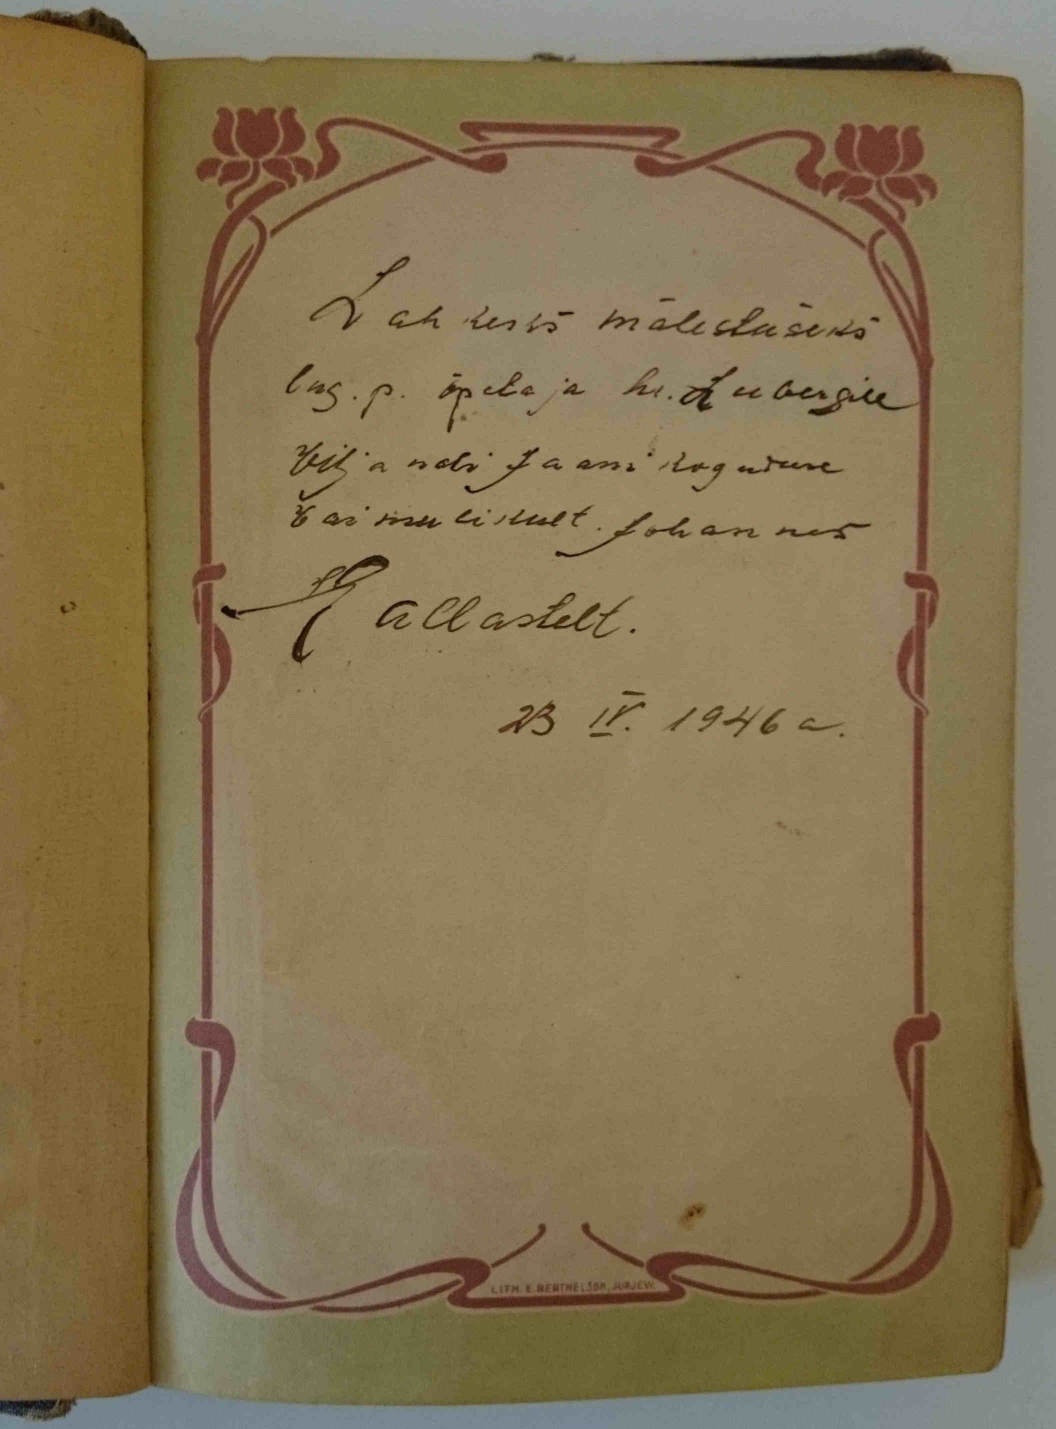 Lahkeks mälestuseks
lug. p. õpetaja hr. Lubergile
Viljandi Jaani koguduse
vaimulikult. Johannes
Kallastelt.
23 IV. 1946 a.
LITH. E. BERTHELSON, JURJEW.